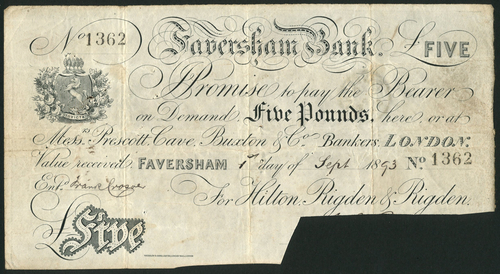 No 1362 Faversham Bank. £ FIVE
I Promise to pay the Bearer
on Demand Five Pounds, here, or at
Messrs Prescott, Cave, Buxton & Co. Bankers, LONDON.
Value received, FAVERSHAM 1st day of Sept 1893 No 1362
Entd Frank
For Hilton, Rigden & Rigden.
£ Five